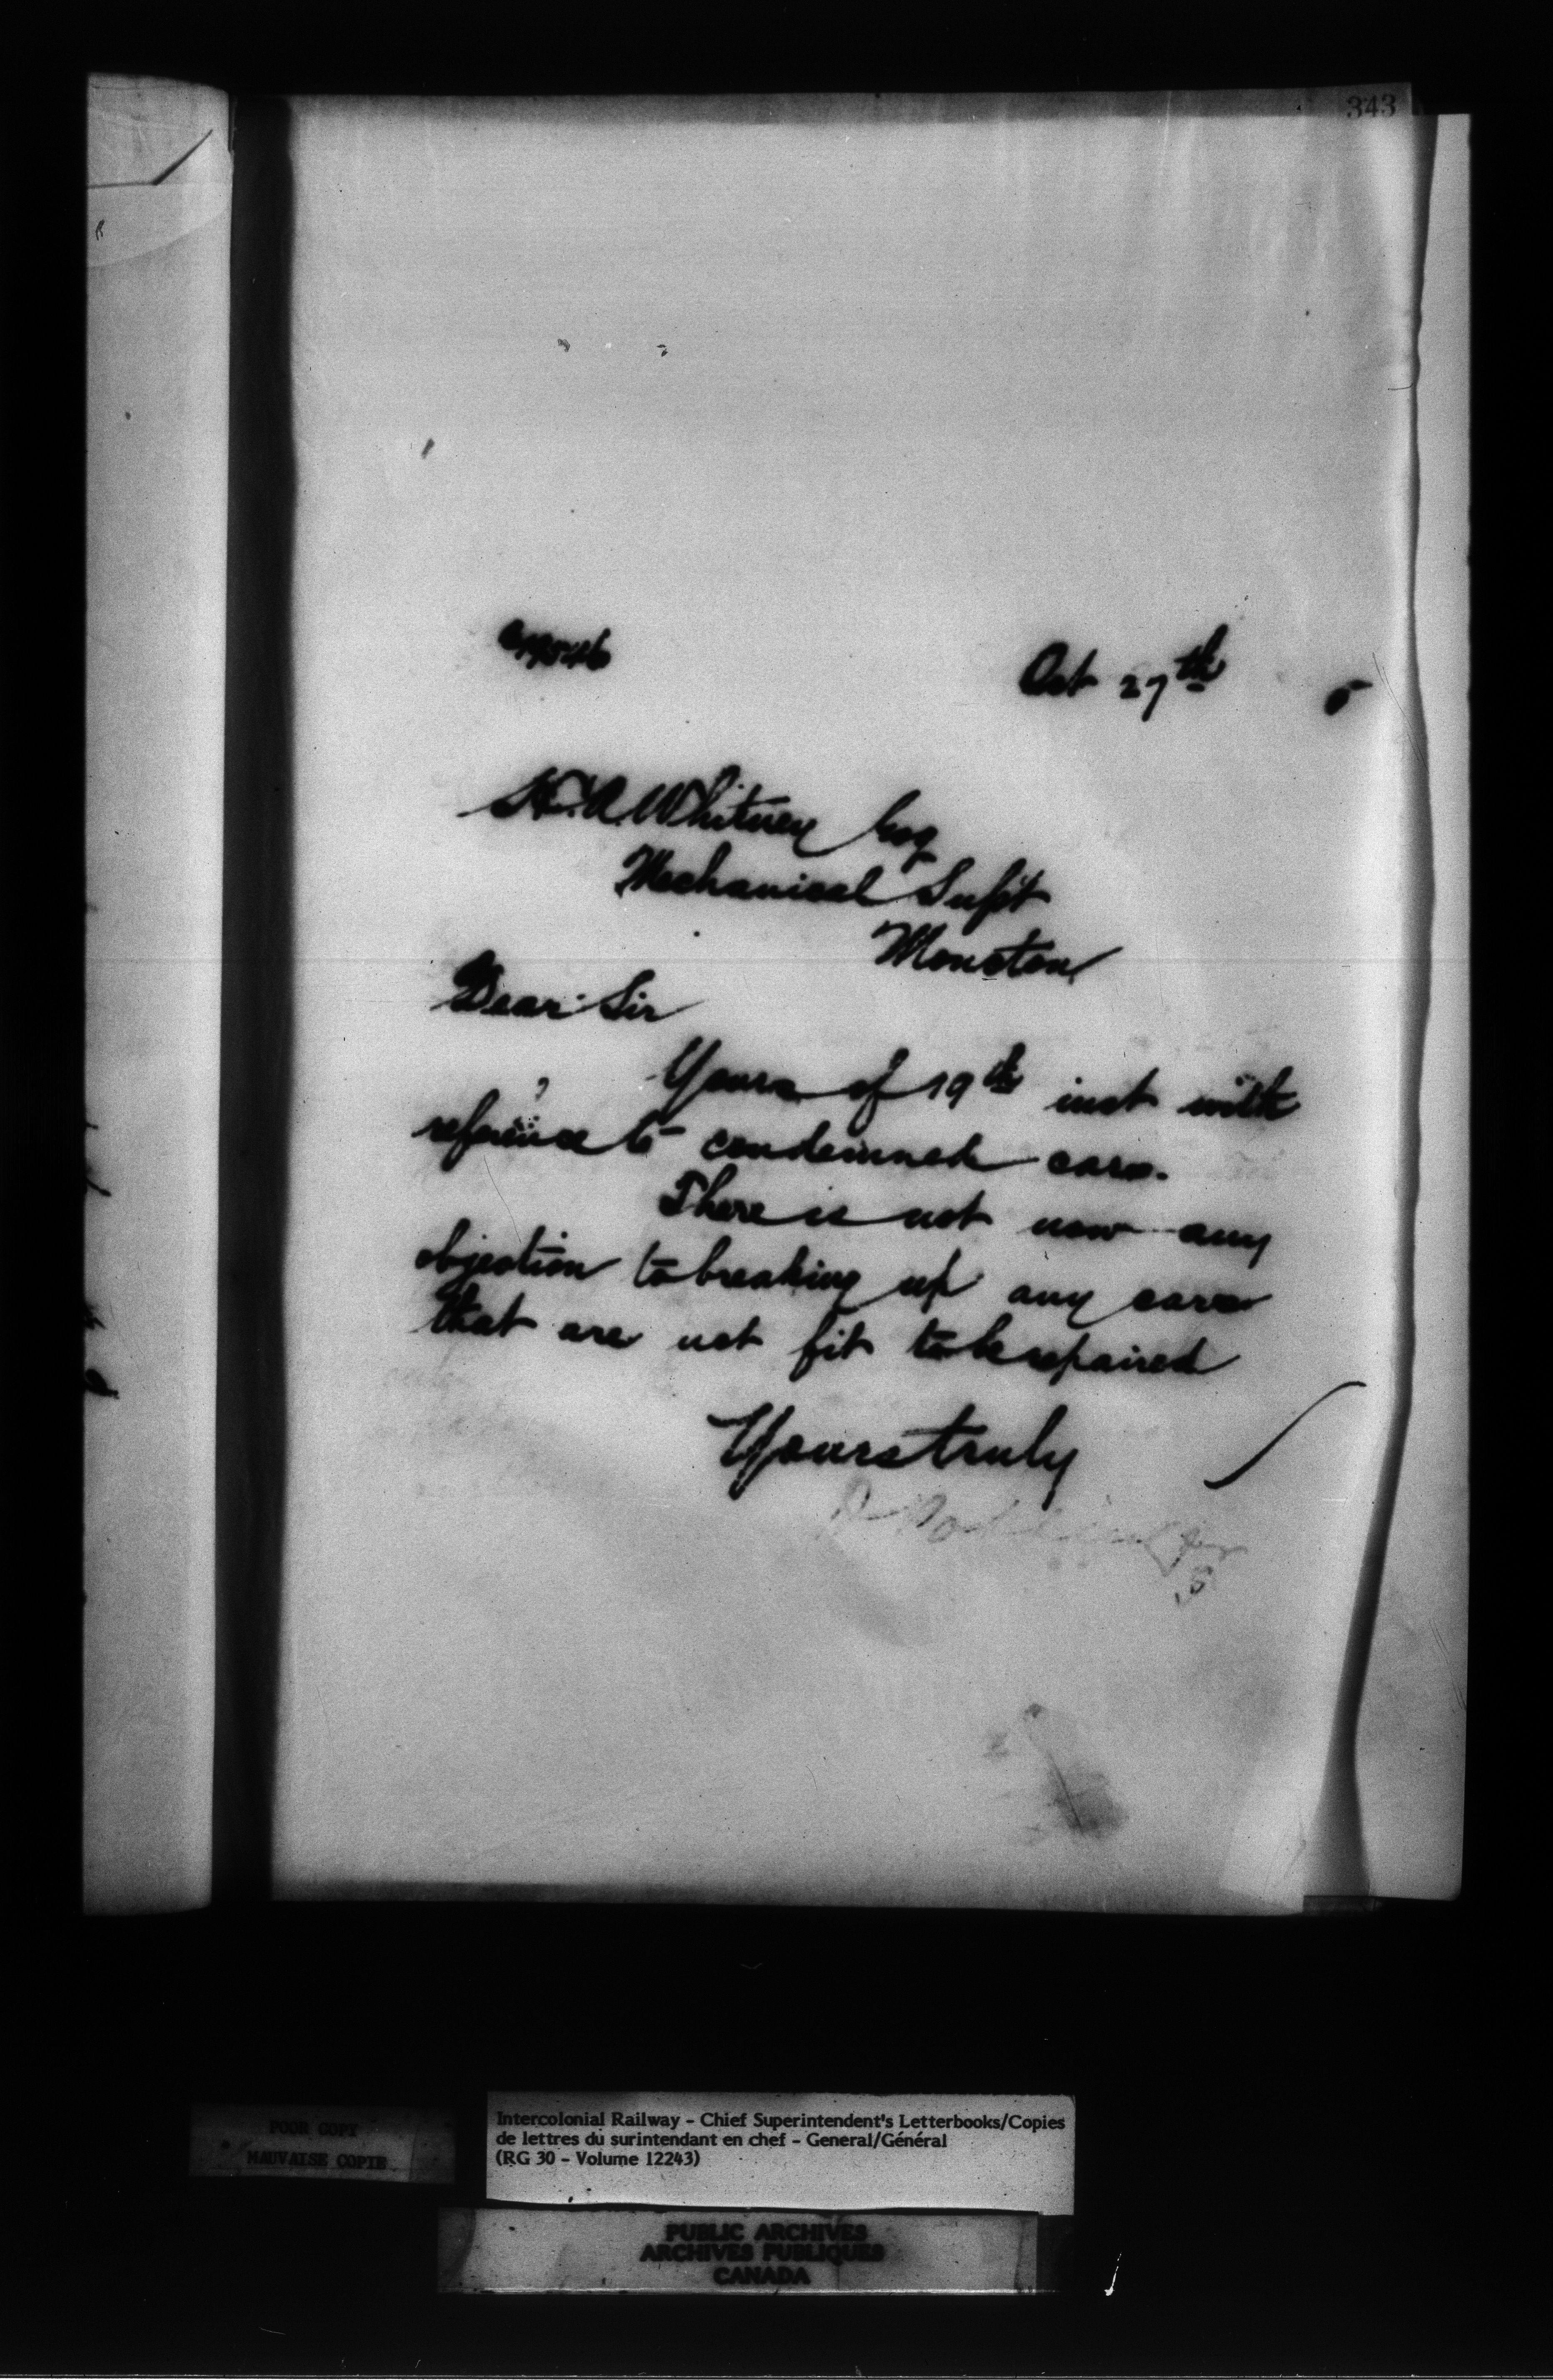 343
Oct 27th 5
H. A. Whitney Esq
Mechanical Supt
Moncton
Dear Sir
Yours of 19th inst with
reference to condemned cars.
There is not now any
objection to breaking up any cars
that are not fit to be repaired
Yours truly
POOR COPY
MAUVAISE COPIE
Intercolonial Railway - Chief Superintendent's Letterbooks/Copies
de lettres du surintendant en chef - General/Général
(RG 30 - Volume 12243)
PUBLIC ARCHIVES
ARCHIVES PUBLIQUES
CANADA